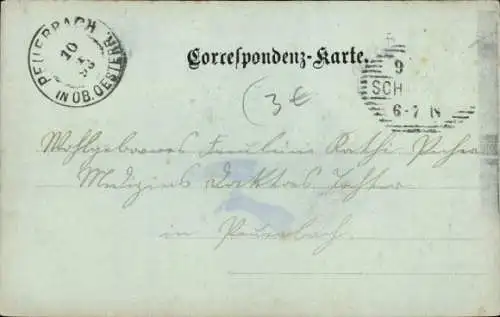 PEUERBACH
10
98
IN OB. OESTERR.
Correspondenz-Karte.
9
SCH
6-7 N
(3€
Wohlgeborenes Fräulein Kathi
Medizins Doktors Tochter
in Peuerbach.